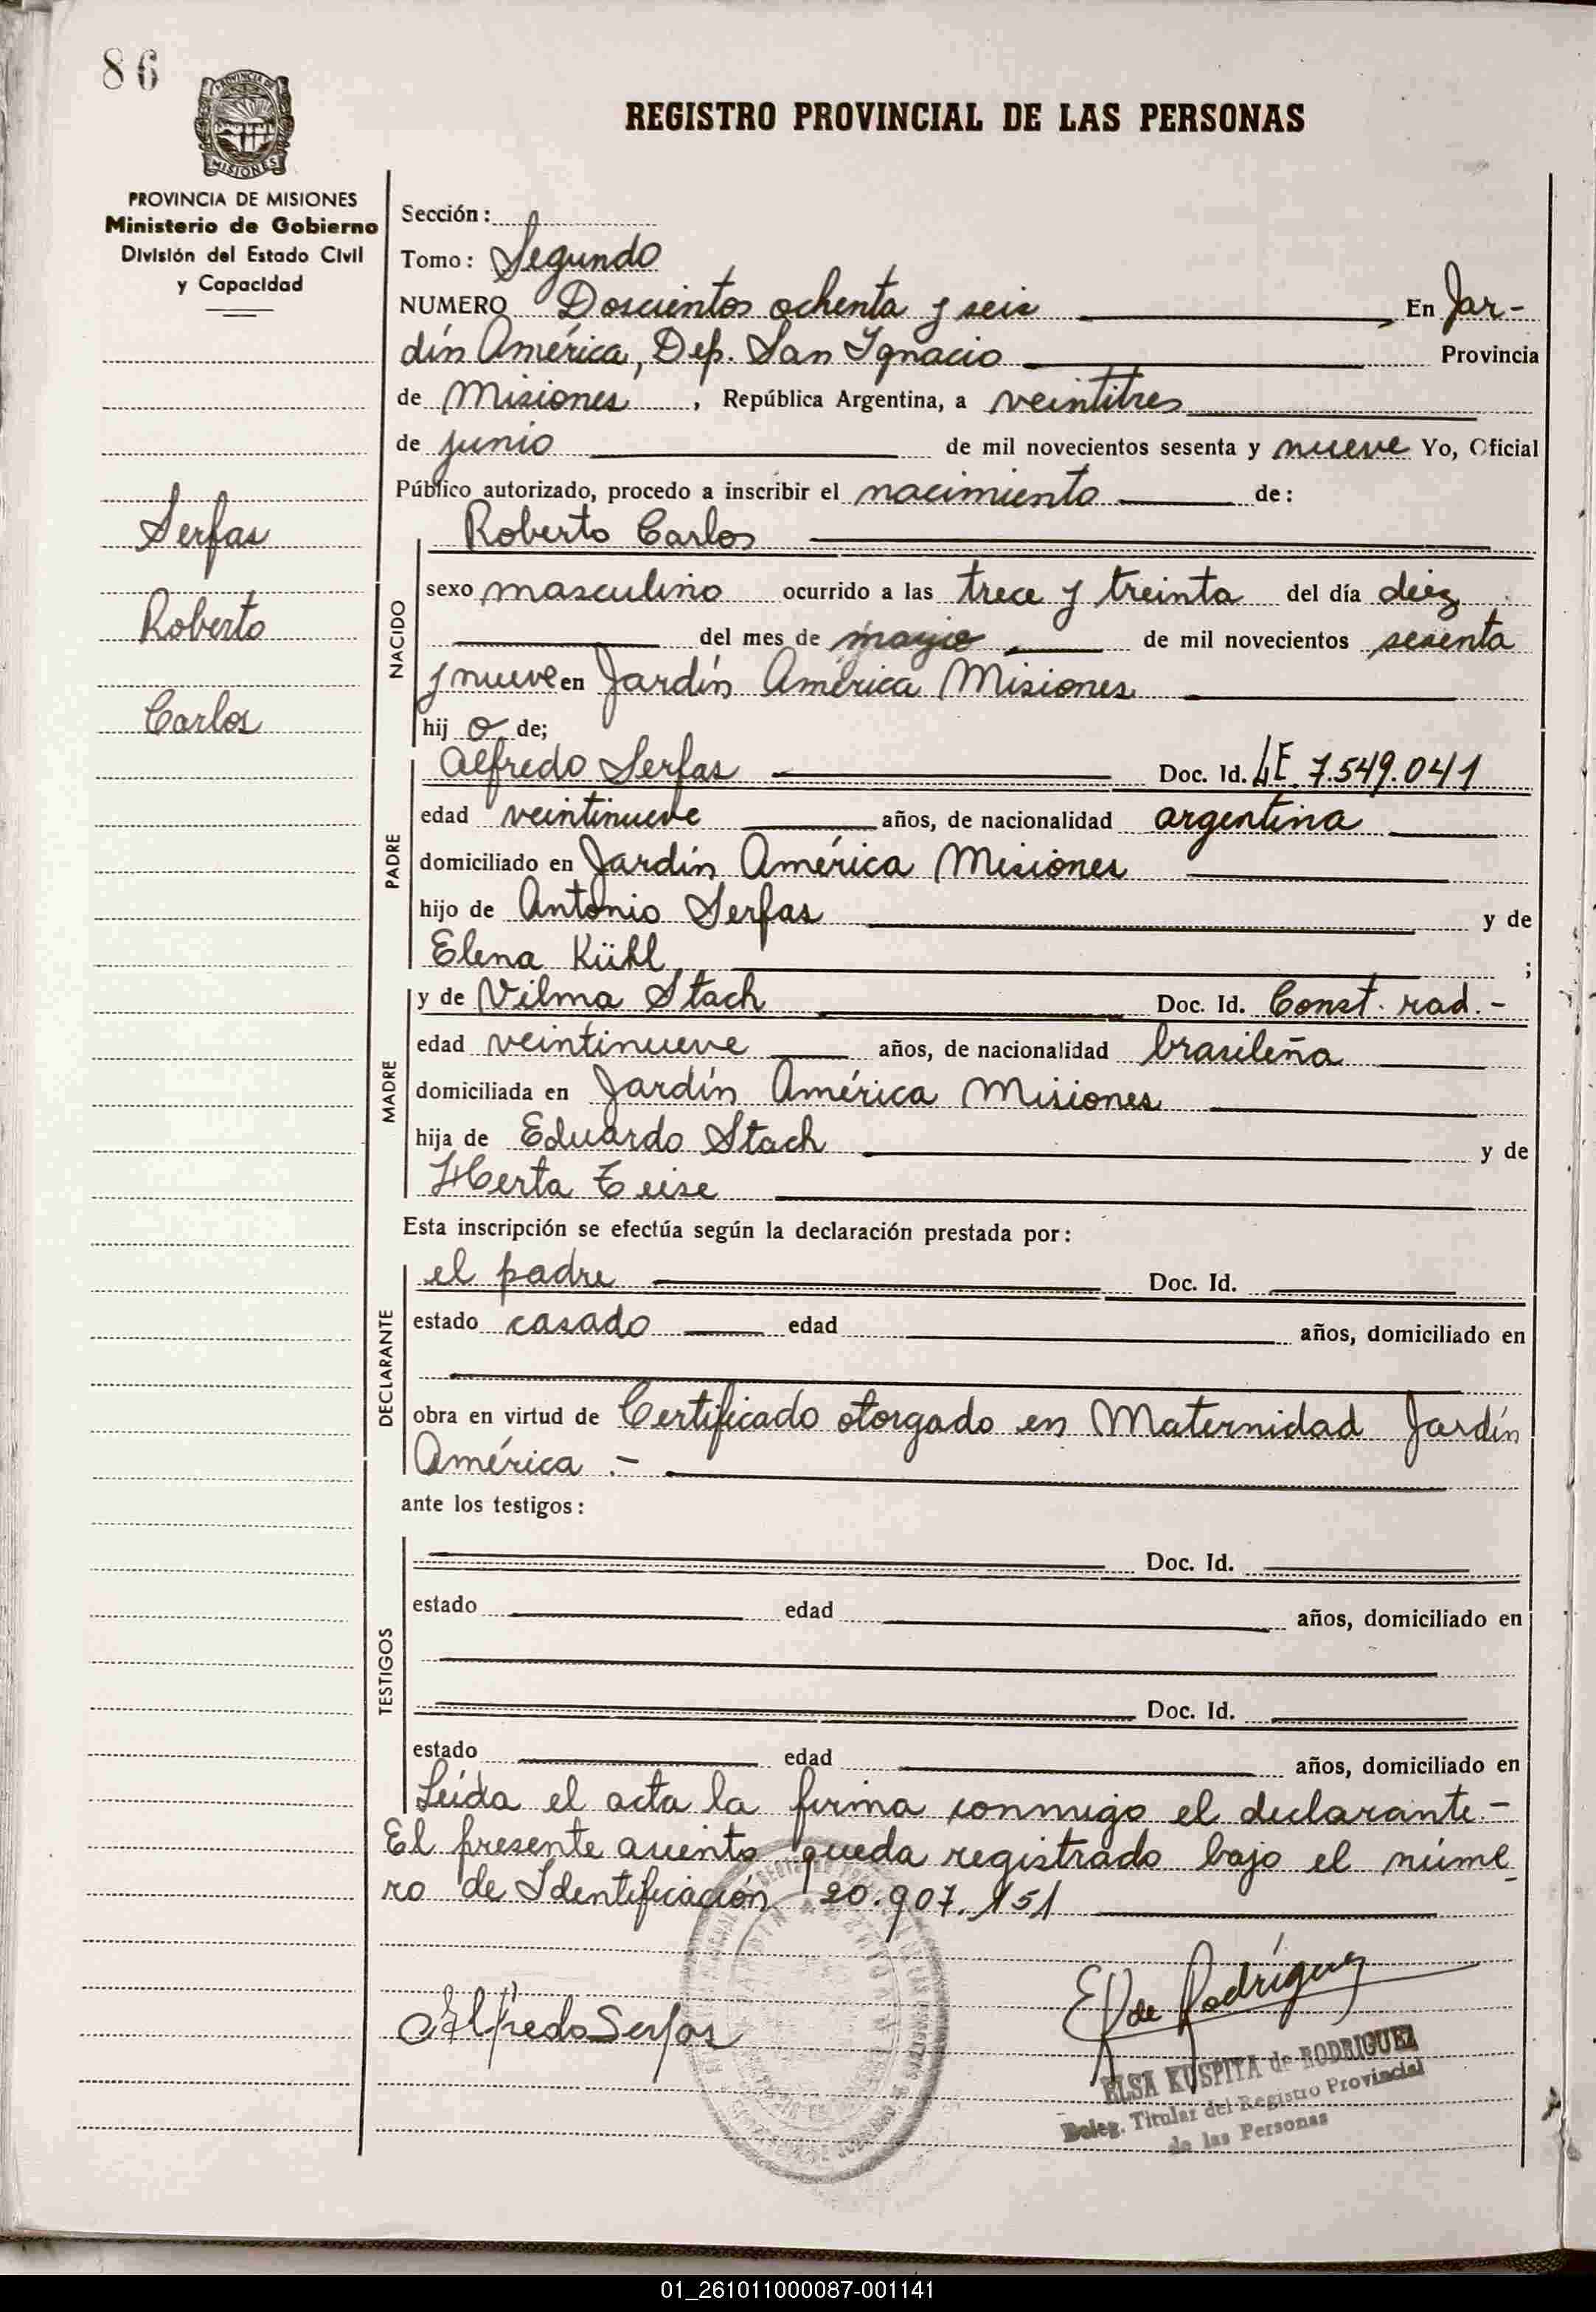 86
PROVINCIA DE
MISIONES
REGISTRO PROVINCIAL DE LAS PERSONAS
PROVINCIA DE MISIONES
Ministerio de Gobierno
División del Estado Civil
y Capacidad
Serfas
Roberto
Carlos
Sección:
Tomo: Segundo
NUMERO Doscientos ochenta y seis En Jar-
dín América, Dep. San Ignacio Provincia
de Misiones, República Argentina, a veintitres
de junio de mil novecientos sesenta y nueve Yo, Oficial
Público autorizado, procedo a inscribir el nacimiento de:
Roberto Carlos
NACIDO
sexo masculino ocurrido a las trece y treinta del día diez
del mes de mayo de mil novecientos sesenta
y nueve en Jardín América Misiones
hij o de;
PADRE
Alfredo Serfas Doc. Id. LE. 7.549.041
edad veintinueve años, de nacionalidad argentina
domiciliado en Jardín América Misiones
hijo de Antonio Serfas y de
Elena Kühl ;
MADRE
y de Vilma Stach Doc. Id. Const. rad.-
edad veintinueve años, de nacionalidad brasileña
domiciliada en Jardín América Misiones
hija de Eduardo Stach y de
Herta
Esta inscripción se efectúa según la declaración prestada por:
DECLARANTE
el padre Doc. Id.
estado casado edad años, domiciliado en
obra en virtud de Certificado otorgado en Maternidad Jardín
América.-
ante los testigos:
TESTIGOS
Doc. Id.
estado edad años, domiciliado en
Doc. Id.
estado edad años, domiciliado en
Leída el acta la firma conmigo el declarante.-
El presente asiento queda registrado bajo el núme
ro de Identificación 20.907.151
Alfredo Serfas
E K de Rodríguez
ELSA KUSPITA de RODRIGUEZ
Deleg. Titular del Registro Provincial
de las Personas
01_261011000087-001141